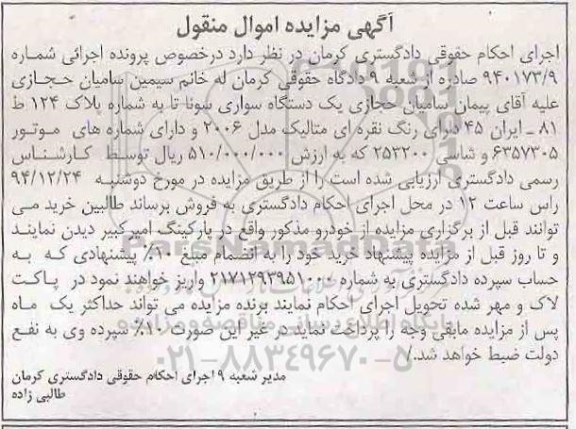 آگهی مزایده اموال منقول
اجرای احکام حقوقی دادگستری کرمان در نظر دارد درخصوص پرونده اجرائی شماره
۹۴۰۱۷۳/۹ صادره از شعبه ۹ دادگاه حقوقی کرمان له خانم سیمین سامیان حجازی
علیه آقای پیمان سامیان حجازی یک دستگاه سواری سوناتا به شماره پلاک ۱۲۴ ط
۸۱ ـ ایران ۴۵ دارای رنگ نقره ای متالیک مدل ۲۰۰۶ و دارای شماره های موتور
۶۳۵۷۳۰۵ و شاسی ۲۵۳۲۰۰ که به ارزش ۵۱۰/۰۰۰/۰۰۰ ریال توسط کارشناس
رسمی دادگستری ارزیابی شده است را از طریق مزایده در مورخ دوشنبه ۹۴/۱۲/۲۴
راس ساعت ۱۲ در محل اجرای احکام دادگستری به فروش برساند طالبین خرید می
توانند قبل از برگزاری مزایده از خودرو مذکور واقع در پارکینگ امیرکبیر دیدن نمایند
و تا روز قبل از مزایده پیشنهاد خرید خود را به انضمام مبلغ ۱۰٪ پیشنهادی که به
حساب سپرده دادگستری به شماره ۲۱۷۱۲۹۳۹۵۱۰۰۰ واریز خواهند نمود در پاکت
لاک و مهر شده تحویل اجرای احکام نمایند برنده مزایده می تواند حداکثر یک ماه
پس از مزایده مابقی وجه را پرداخت نماید در غیر این صورت ۱۰٪ سپرده وی به نفع
دولت ضبط خواهد شد./
مدیر شعبه ۹ اجرای احکام حقوقی دادگستری کرمان
طالبی زاده
ParsNamadData
۰۲۱-۸۸۳۴۹۶۷۰-۵